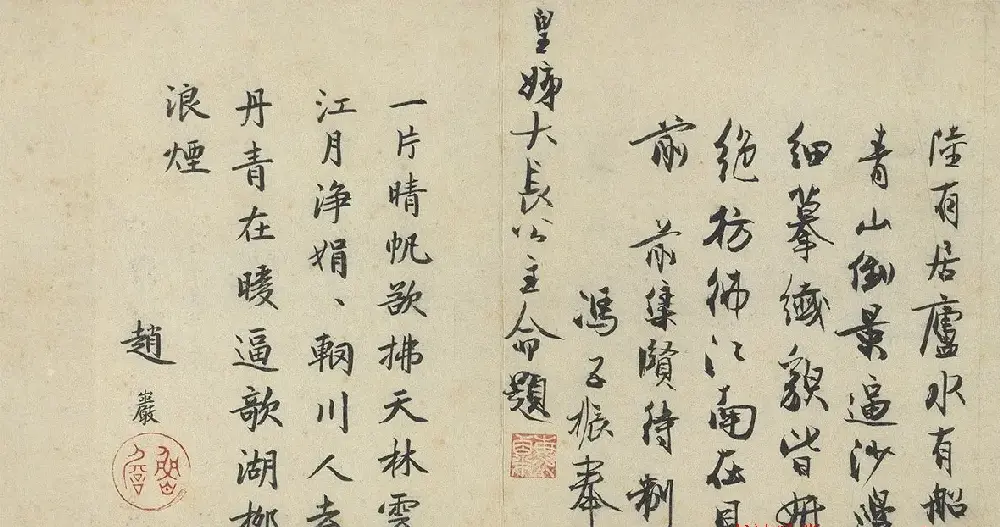 陸有居廬水有船
青山倒景逼沙邊
細摹纖貌皆妍
絕彷彿江南在目
前　前集賢待制
馮子振奉
皇姊大長公主命題
一片晴帆欲拂天林雲
江月淨娟〻輞川人去
丹青在暖逼歌湖柳
浪煙
趙巖